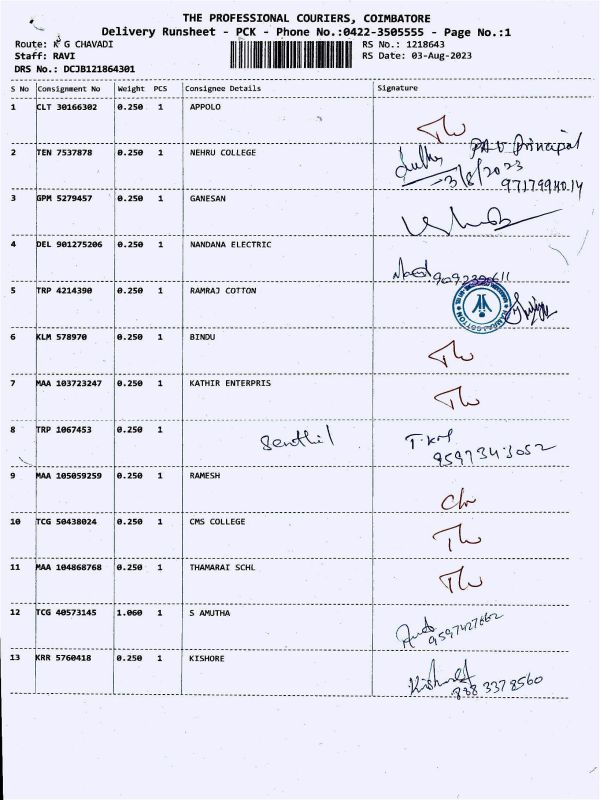 THE PROFESSIONAL COURIERS, COIMBATORE
Delivery Runsheet - PCK - Phone No.:0422-3505555 - Page No.:1
Route: K G CHAVADI RS No.: 1218643
Staff: RAVI RS Date: 03-Aug-2023
DRS No.: DCJB121864301
S No Consignment No Weight PCS Consignee Details Signature
1 CLT 30166302 0.250 1 APPOLO
2 TEN 7537878 0.250 1 NEHRU COLLEGE
Principal
3/8/2023
3 GPM 5279457 0.250 1 GANESAN
4 DEL 901275206 0.250 1 NANDANA ELECTRIC
5 TRP 4214390 0.250 1 RAMRAJ COTTON
RAMRAJ COTTON
6 KLM 578970 0.250 1 BINDU
7 MAA 103723247 0.250 1 KATHIR ENTERPRIS
8 TRP 1067453 0.250 1
Senthil
9597343052
9 MAA 105059259 0.250 1 RAMESH
10 TCG 50438024 0.250 1 CMS COLLEGE
11 MAA 104868768 0.250 1 THAMARAI SCHL
12 TCG 40573145 1.060 1 S AMUTHA
9597427662
13 KRR 5760418 0.250 1 KISHORE
888 3378560